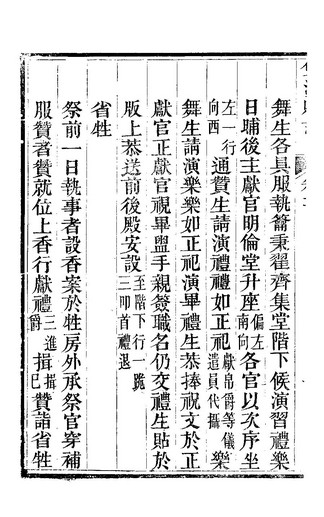 舞生各具服執籥秉翟齊集堂階下候演習禮樂
日晡後主獻官明倫堂升座偏左南向各官以次序坐
左一行向西通贊生請演禮禮如正祀獻帛爵等儀遣員代攝樂
舞生請演樂樂如正祀演畢禮生恭捧祝文於正
獻官正獻官視畢盥手親簽職名仍交禮生貼於
版上恭送前後殿安設至階下行一跪三叩首禮退
省牲
祭前一日執事者設香案於牲房外承祭官穿補
服贊者贊就位上香行獻禮三進爵揖揖已贊詣省牲